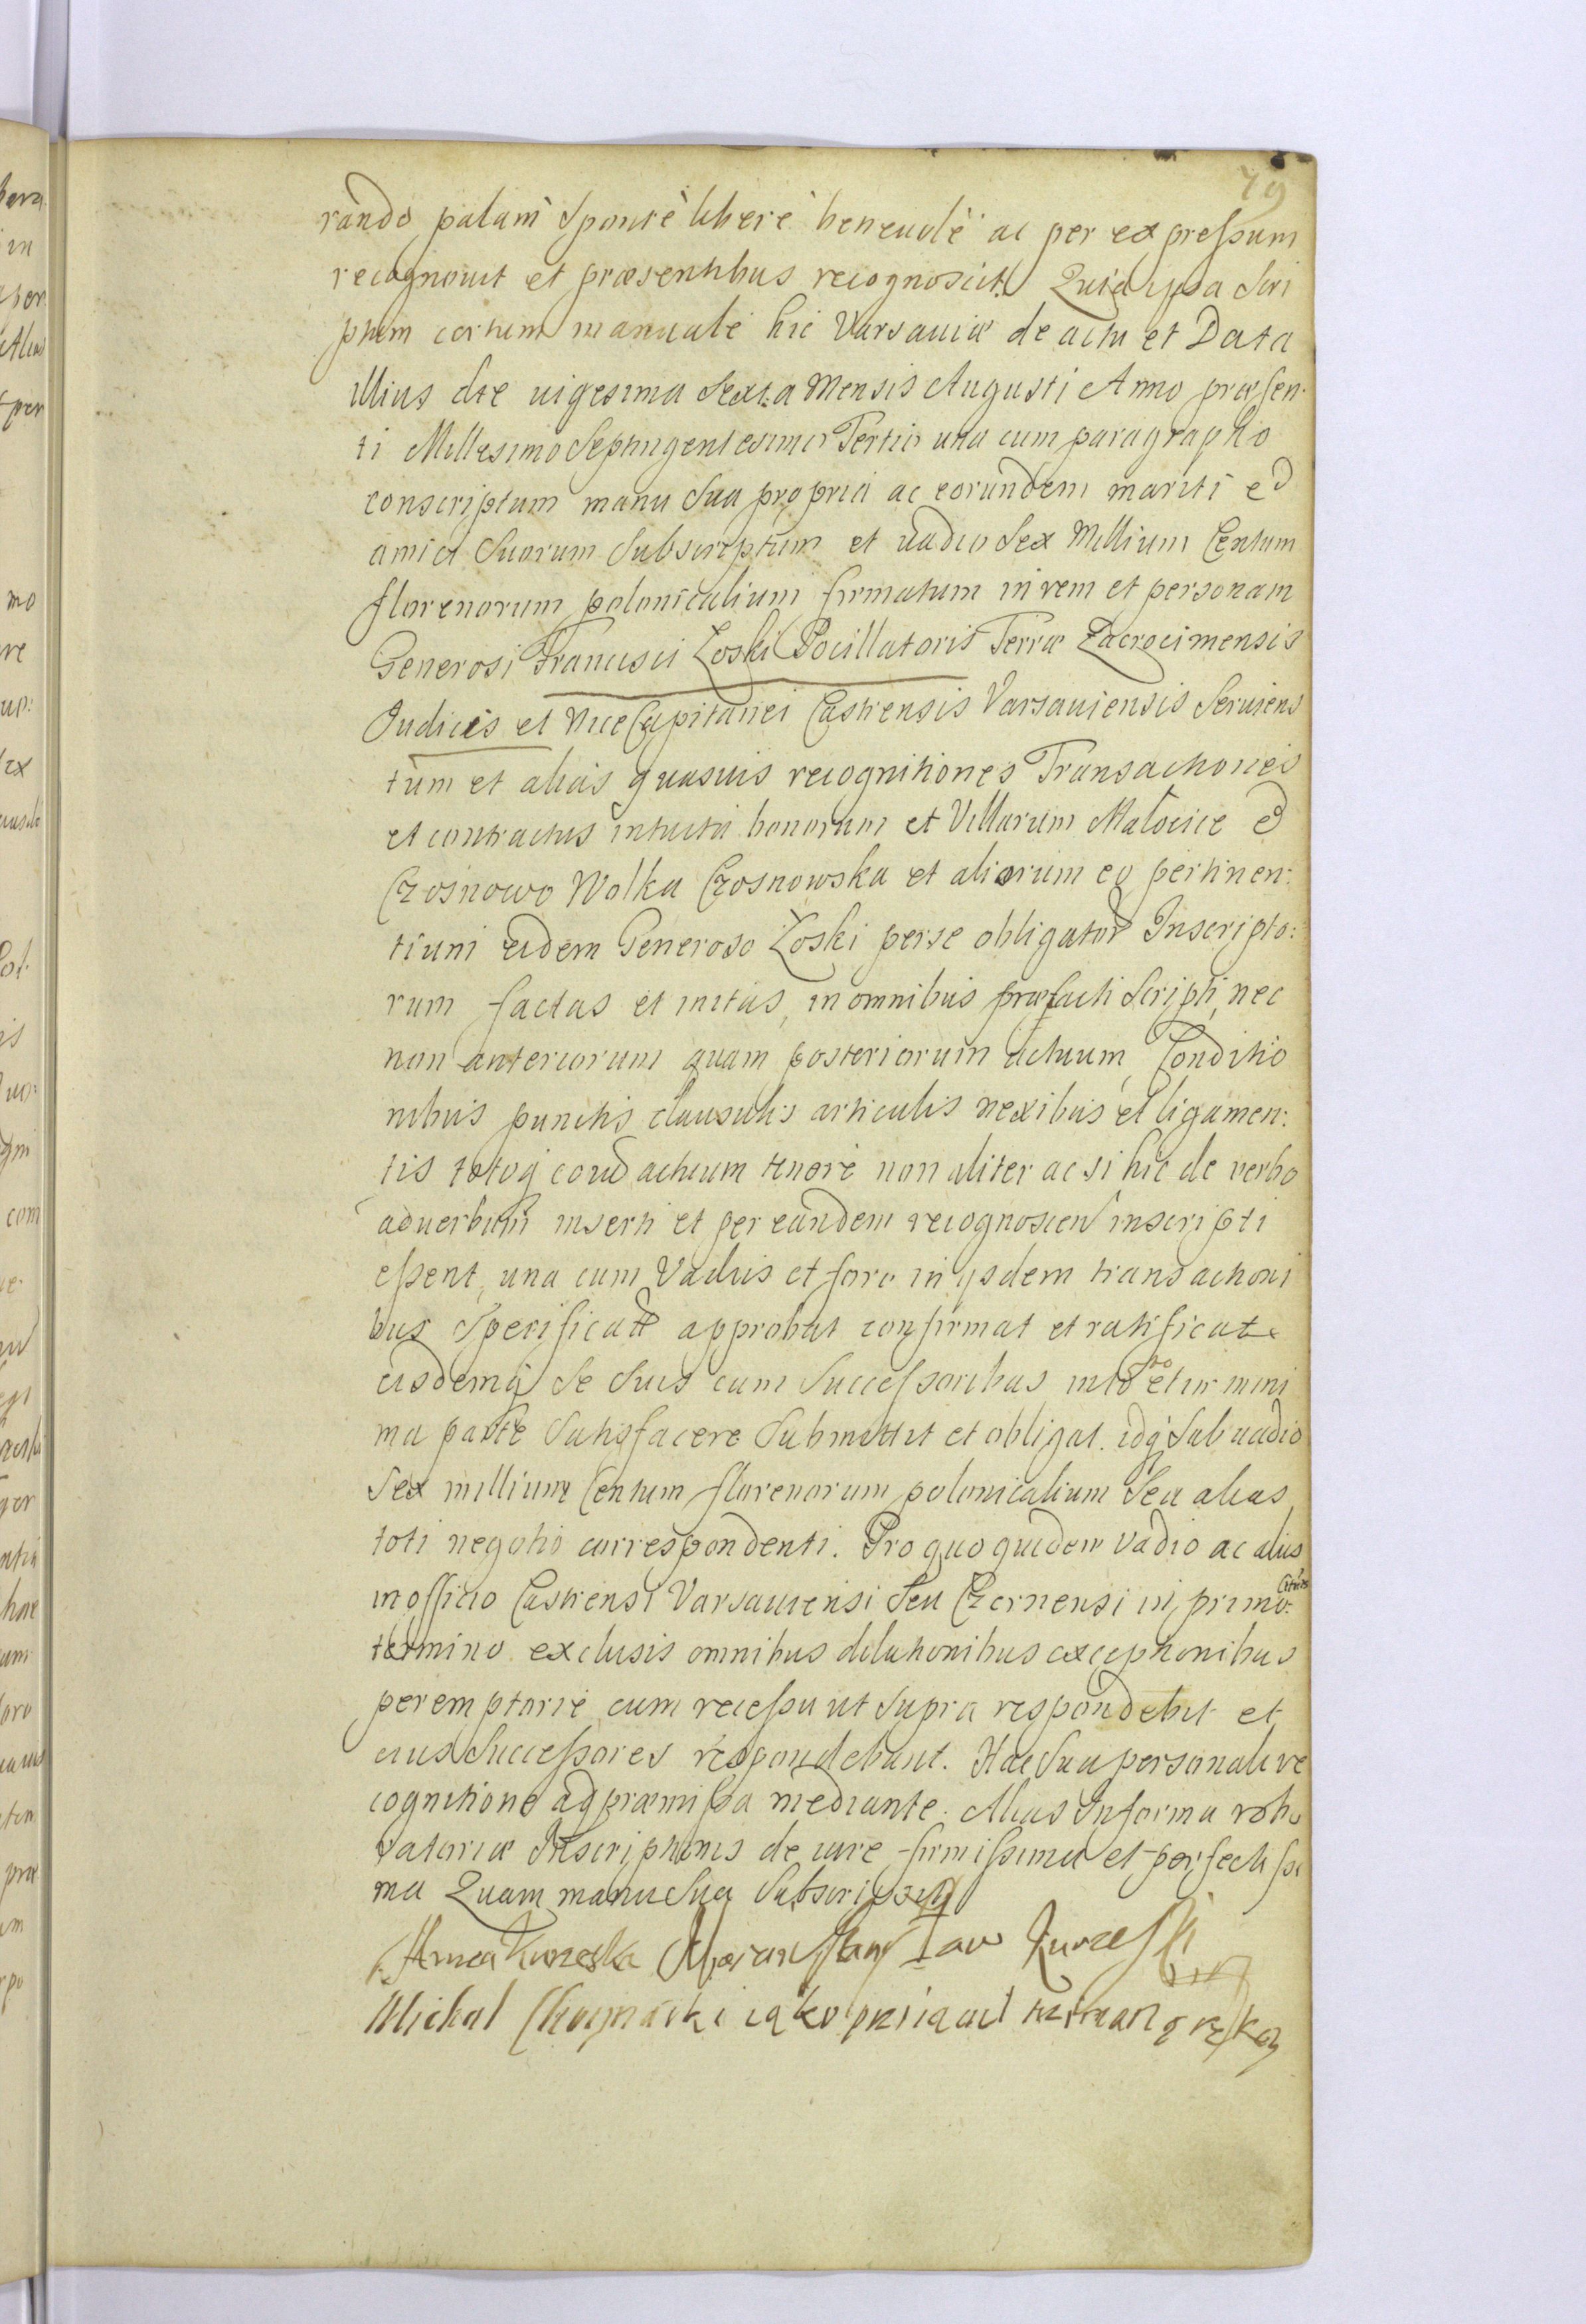 79
rando palam sponte libere beneuole ac per expressum
recognouit et præsentibus recognoscit. Quia ipsa Scri
ptum certum manuale hic Varsauiæ de actu et Data
illius die uigesima Sexta Mensis Augusti Anno præsen:
ti Millesimo Septingentesimo Tertio una cum paragrapho
conscriptum manu Sua propria ac eorundem mariti et
amici Suorum Subscriptum et uadio Sex Millium Centum
florenorum polonicalium firmatum in rem et personam
Generosi Francisci Zoski Pocillatoris Terræ Zacrocimensis
Judicis et Vice Capitanei Castrensis Varsauiensis Seruiens
tum et alias quasuis recognitiones Transactiones
et contractus intuitu bonorum et Villarum Małocice et
Czosnowo Wolka Czosnowska et aliorum eo pertinen:
tium eidem Generoso Zoski per se obligator Inscripto:
rum factas et initas, in omnibus præfacti Scripti, nec
non anteriorum quam posteriorum actuum, Conditio
nibus punctis clausulis articulis nexibus et ligamen:
tis totoq eorund actuum tenore non aliter ac si hic de verbo
ad uerbum inserti et per eandem recognoscen inscripti
essent, una cum Vadiis et foro in ijsdem transactioni
bus Specificatt approbat confirmat et ratificat
eisdemq Se Suis cum Successoribus in toto et in mini
ma parte Satisfacere Submittit et obligat. idq Sub uadio
Sex millium Centum florenorum polonicalium Seu alias
toti negotio correspondenti. Pro quo quidem Vadio ac aliis
in officio Castrensi Varsauiensi Seu Czernensi in primo citnis
termino exclusis omnibus dilationibus exceptionibus
peremptorie cum recessu ut Supra respondebit et
eius Successores respondebunt. Hac Sua personali re
cognitione ad præmissa mediante. Alias In forma robo
ratoriæ Inscriptionis de iure firmissima et perfectissi
ma Quam manu Sua Subscripsit
Anna Kurzeska Marian Stanisław Kurzeski
Michal Choynacki iako prziaciel